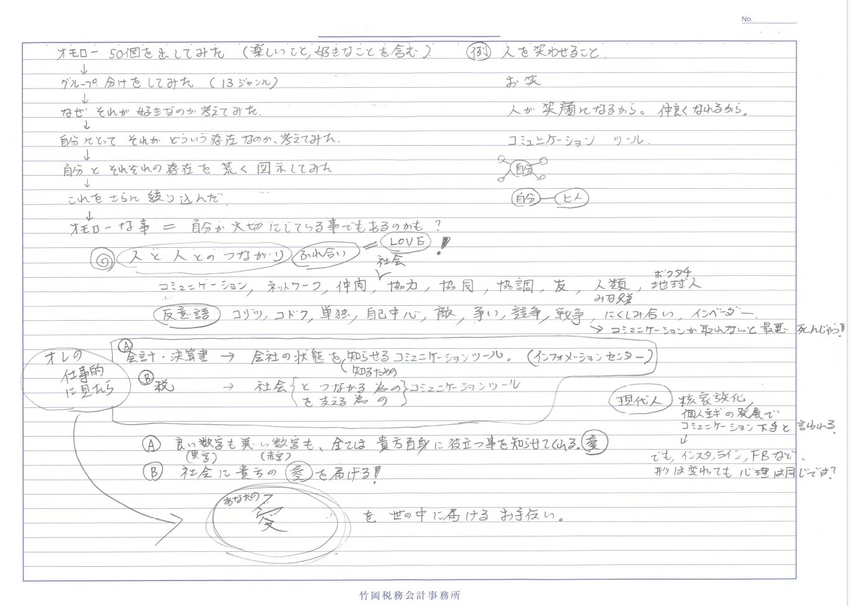 No.
オモロー 50個を出してみた (楽しいこと,好きなことを含む)
↓
グループ分けをしてみた (13ジャンル)
↓
なぜ それが 好きなのか考えてみた.
↓
自分にとって それが どういう存在なのか、考えてみた.
↓
自分と それぞれの存在を 荒く 図示してみた
↓
これをさらに 絞り込んだ.
↓
オモローな事 = 自分が大切にしている事でもあるのかも?
例 人を笑わせること
お笑
人が 笑顔になるから。 仲良くなれるから。
コミュニケーション ツール.
自分
自分 ヒト
◎ 人と人とのつながり ふれ合い = LOVE!
社会
コミュニケーション, ネットワーク, 仲間, 協力, 協同, 協調, 友, 人類, 地球人
みな兄弟
ボクタチ
反意語 コリツ, コドク, 単独, 自己中心, 敵, 争い, 競争, 戦争, にくしみ合い, インベーダー.
→ コミュニケーションが取れないと最悪 死んじゃう!!
オレの
仕事的
に見たら
Ⓐ 会計・決算書 → 会社の状態を知らせるコミュニケーションツール。(インフォメーションセンター)
知るための
Ⓑ 税 → 社会 { とつながる為の
を支える為の } コミュニケーションツール
現代人 核家族化,
個人主義の発展で
コミュニケーション下手と言われる
↓
でも,インスタ,ライン,FBなど、
形は変わっても 心理は同じでは?
Ⓐ 良い数字も悪い数字も、全ては 貴方自身に役立つ事を知らせてくれる. 愛
(黒字) (赤字)
Ⓑ 社会に貴方の 愛 を届ける!!
あなたの
愛 を 世の中に届ける お手伝い。
竹岡税務会計事務所